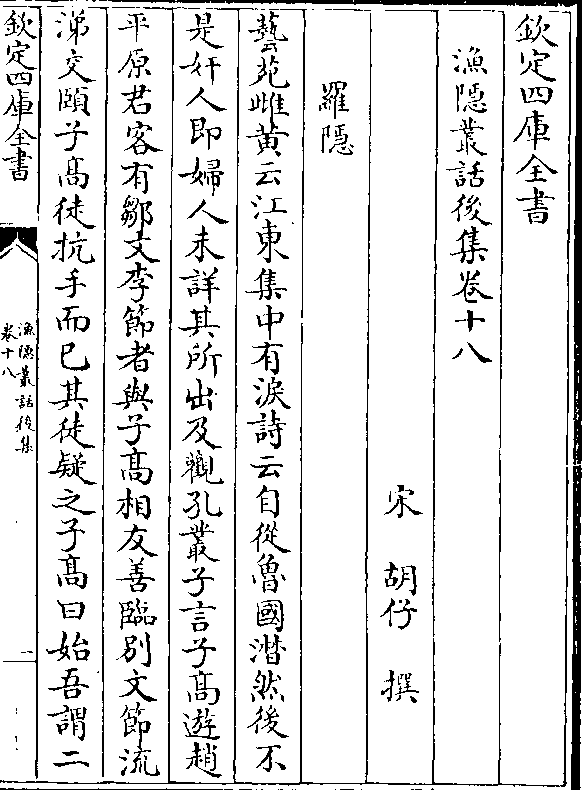 欽定四庫全書
漁隱叢話後集卷十八
宋 胡仔 撰
羅隱
藝苑雌黃云江東集中有淚詩云自從魯國潸然後不
是奸人即婦人未詳其所出及觀孔叢子言子髙遊趙
平原君客有鄒文李節者與子髙相友善臨别文節流
涕交頤子髙徒抗手而已其徒疑之子髙曰始吾謂二
欽定四庫全書
漁隱叢話後集
卷十八
一